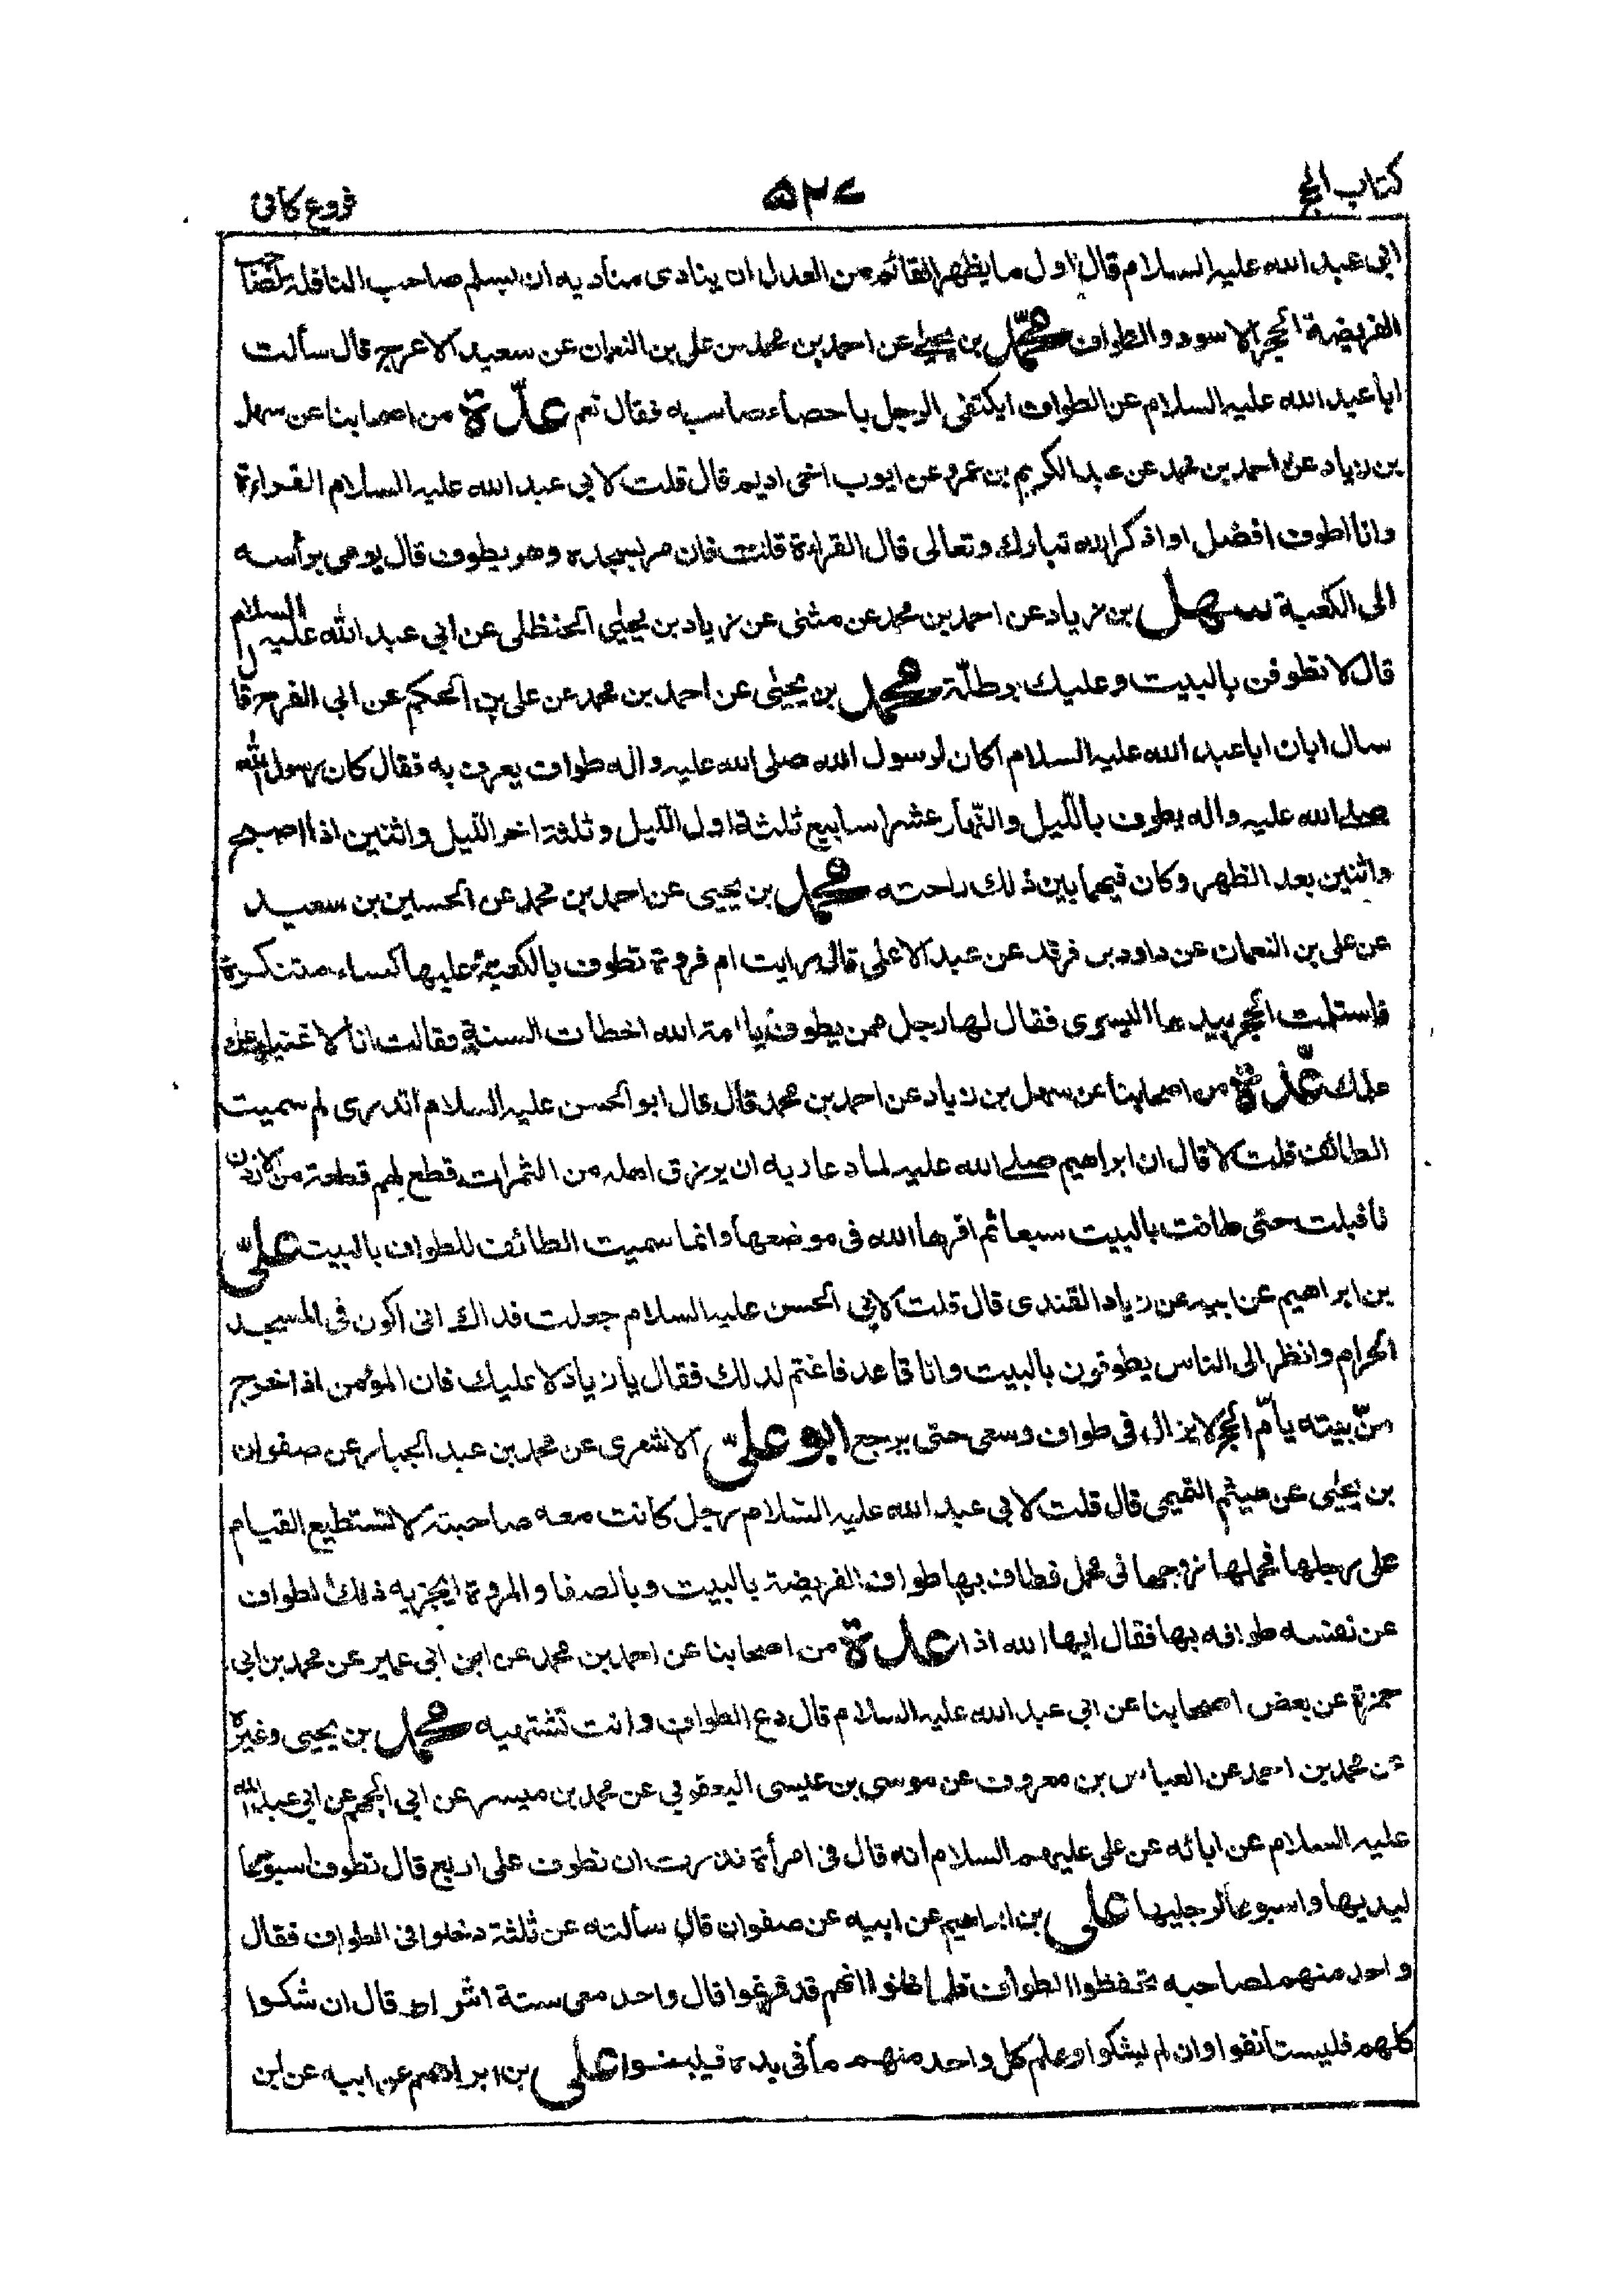 كتاب الحج
۵۲۷
فروع كافى
ابى عبد الله عليه السلام قال اول ما يظهر القائم من العدل ان ينادى مناديه ان يسلم صاحب النافلة لصاحب
الفريضة الحجر الاسود والطواف محمّد بن يحيى عن احمد بن محمد عن على بن النعمان عن سعيد الاعرج قال سألت
ابا عبد الله عليه السلام عن الطواف ايكتفى الرجل باحصاء صاحبه فقال نعم عدّة من اصحابنا عن سهل
بن زياد عن احمد بن محمد عن عبد الكريم بن عمرو عن ايوب اخى اديم قال قلت لابى عبد الله عليه السلام القراءة
وانا اطوف افضل او اذكر الله تبارك وتعالى قال القراءة قلت فان مر بسجدة وهو يطوف قال يومى برأسه
الى الكعبة سهل بن زياد عن احمد بن محمد عن مثنى عن زياد بن يحيى الحنظلى عن ابى عبد الله عليه السلام
قال لا تطوفن بالبيت وعليك برطلّة محمد بن يحيى عن احمد بن محمد عن على بن الحكم عن ابى الفرج قال
سال ابان ابا عبد الله عليه السلام اكان لرسول الله صلى الله عليه واله طواف يعرف به فقال كان رسول الله
صلى الله عليه واله يطوف بالليل والنهار عشر اسابيع ثلثة اول الليل وثلثة اخر الليل واثنين اذا اصبح
واثنين بعد الظهر وكان فيما بين ذلك راحته محمد بن يحيى عن احمد بن محمد عن الحسين بن سعيد
عن على بن النعمان عن داود بن فرقد عن عبد الاعلى قال رايت ام فروة تطوف بالكعبة عليها كساء متنكرة
فاستلمت الحجر بيدها اليسرى فقال لها رجل ممن يطوف يا امة الله اخطات السنة فقالت انا لاغنياء عن
علمك عدّة من اصحابنا عن سهل بن زياد عن احمد بن محمد قال قال ابو الحسن عليه السلام اتدرى لم سميت
الطائف قلت لا قال ان ابراهيم صلى الله عليه لما دعا ربه ان يرزق اهله من الثمرات قطع لهم قطعة من الاردن
فاقبلت حتى طافت بالبيت سبعا ثم اقرها الله فى موضعها وانما سميت الطائف للطواف بالبيت علىّ
بن ابراهيم عن ابيه عن زياد القندى قال قلت لابى الحسن عليه السلام جعلت فداك انى اكون فى المسجد
الحرام وانظر الى الناس يطوفون بالبيت وانا قاعد فاغتم لذلك فقال يا زياد لا عليك فان المؤمن اذا خرج
من بيته يأمّ الحج لا يزال فى طواف وسعى حتى يرجع ابو علىّ الاشعرى عن محمد بن عبد الجبار عن صفوان
بن يحيى عن هيثم التميمى قال قلت لابى عبد الله عليه السلام رجل كانت معه صاحبته لا تستطيع القيام
على رجلها فحملها زوجها فى محمل فطاف بها طواف الفريضة بالبيت وبالصفا والمروة ايجزيه ذلك الطواف
عن نفسه طوافه بها فقال ايها الله اذا عدة من اصحابنا عن احمد بن محمد عن ابن ابى عمير عن محمد بن ابى
حمزة عن بعض اصحابنا عن ابى عبد الله عليه السلام قال دع الطواف وانت تشتهيه محمد بن يحيى وغيره
عن محمد بن احمد عن العباس بن معروف عن موسى بن عيسى اليعقوبى عن محمد بن ميسر عن ابى الجهم عن ابى عبد الله
عليه السلام عن ابائه عن على عليهم السلام انه قال فى امرأة نذرت ان تطوف على اربع قال تطوف اسبوعا
ليديها واسبوعا لرجليها على بن ابراهيم عن ابيه عن صفوان قال سألته عن ثلثة دخلوا فى الطواف فقال
واحد منهم لصاحبه تحفظوا الطواف فلما ظنوا انهم قد فرغوا قال واحد معى ستة اشواط قال ان شكوا
كلهم فليستأنفوا وان لم يشكوا وعلم كل واحد منهم ما فى يده فليبنوا على بن ابراهيم عن ابيه عن ابن